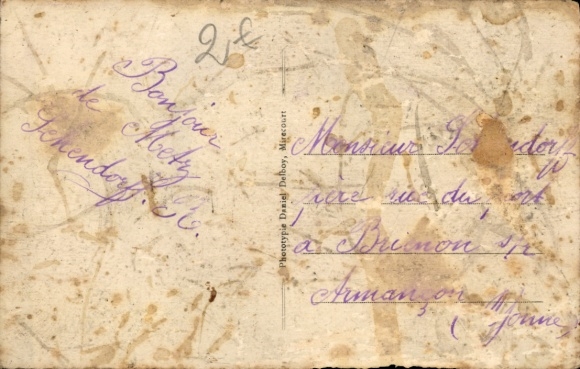 2
Bonjour
de Metz
Schendorf. R.
Phototypie Daniel Delboy, Mirecourt
Monsieur
père rue du port
à Brienon s/r
Armançon
(Yonne)